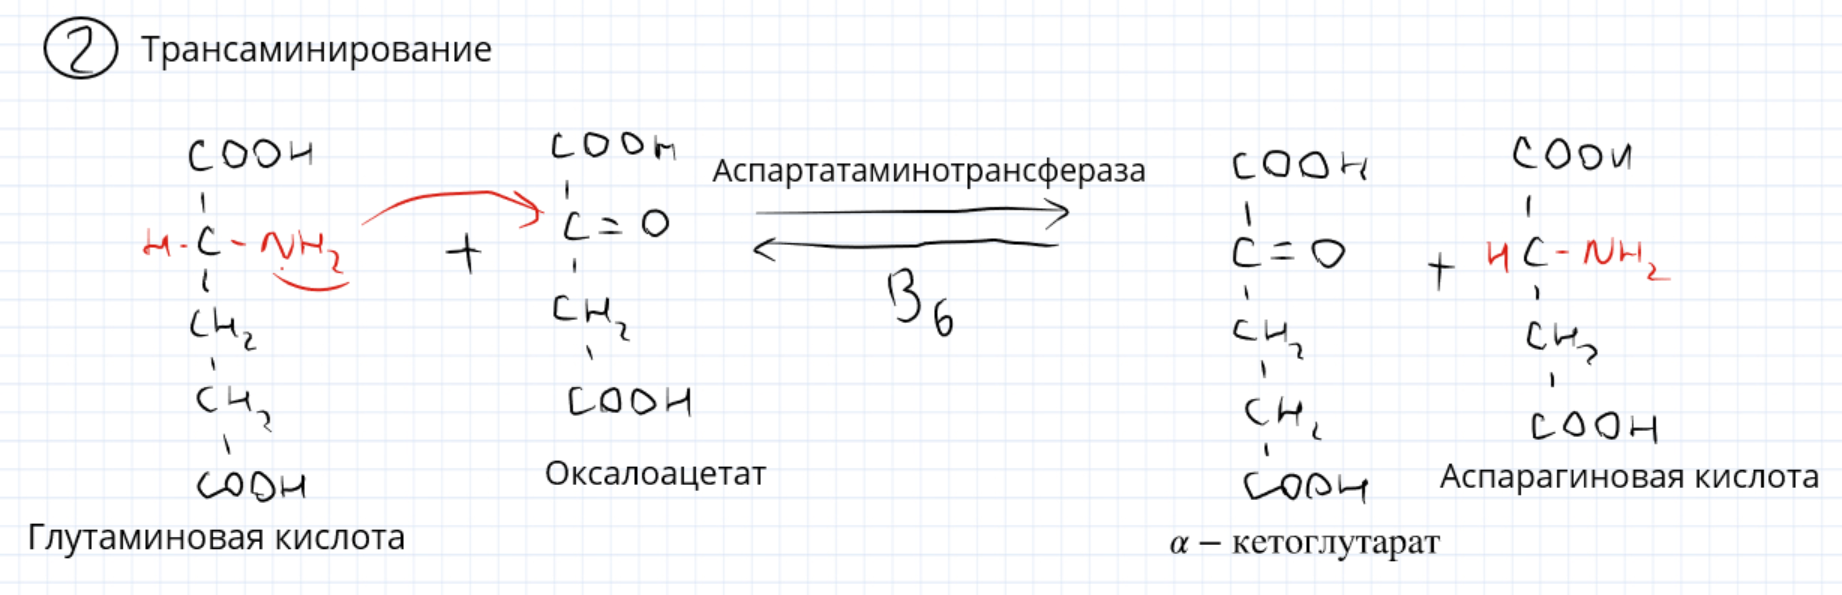 2 Трансаминирование
COOH
H-C-NH2
CH2
CH2
COOH
Глутаминовая кислота
+
COOH
C=O
CH2
COOH
Оксалоацетат
Аспартатаминотрансфераза
B6
COOH
C=O
CH2
CH2
COOH
α – кетоглутарат
+
COOH
H C-NH2
CH2
COOH
Аспарагиновая кислота